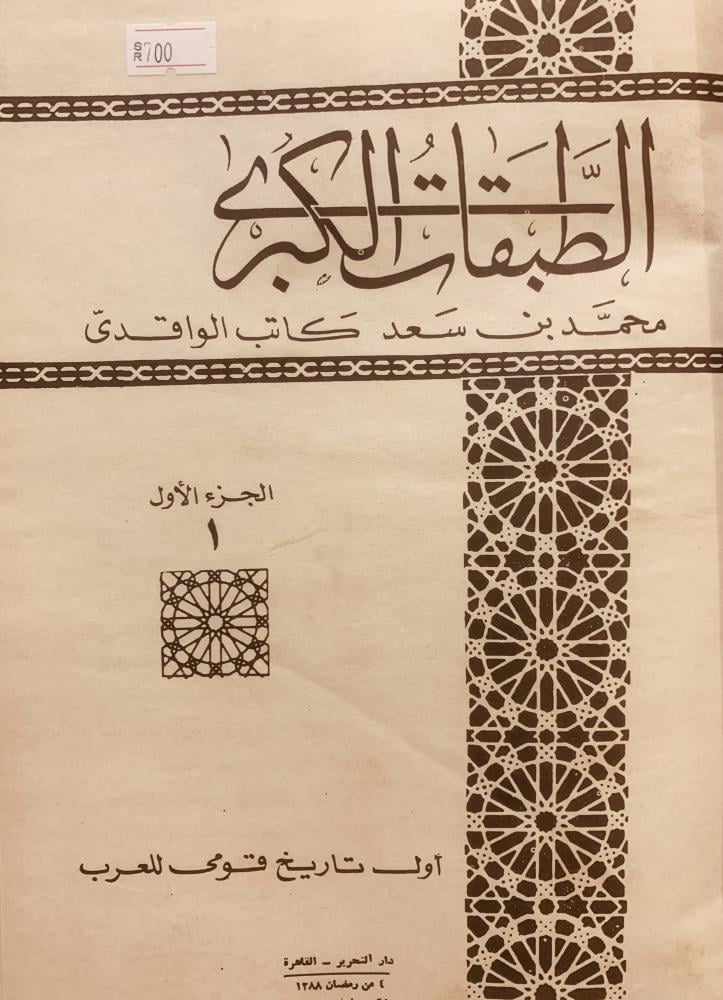 SR 700
الطَّبَقات الكُبرى
محمَّد بن سَعد كاتب الواقدىّ
الجزء الأول
١
أول تاريخ قومى للعرب
دار التحرير - القاهرة
٤ من رمضان ١٣٨٨